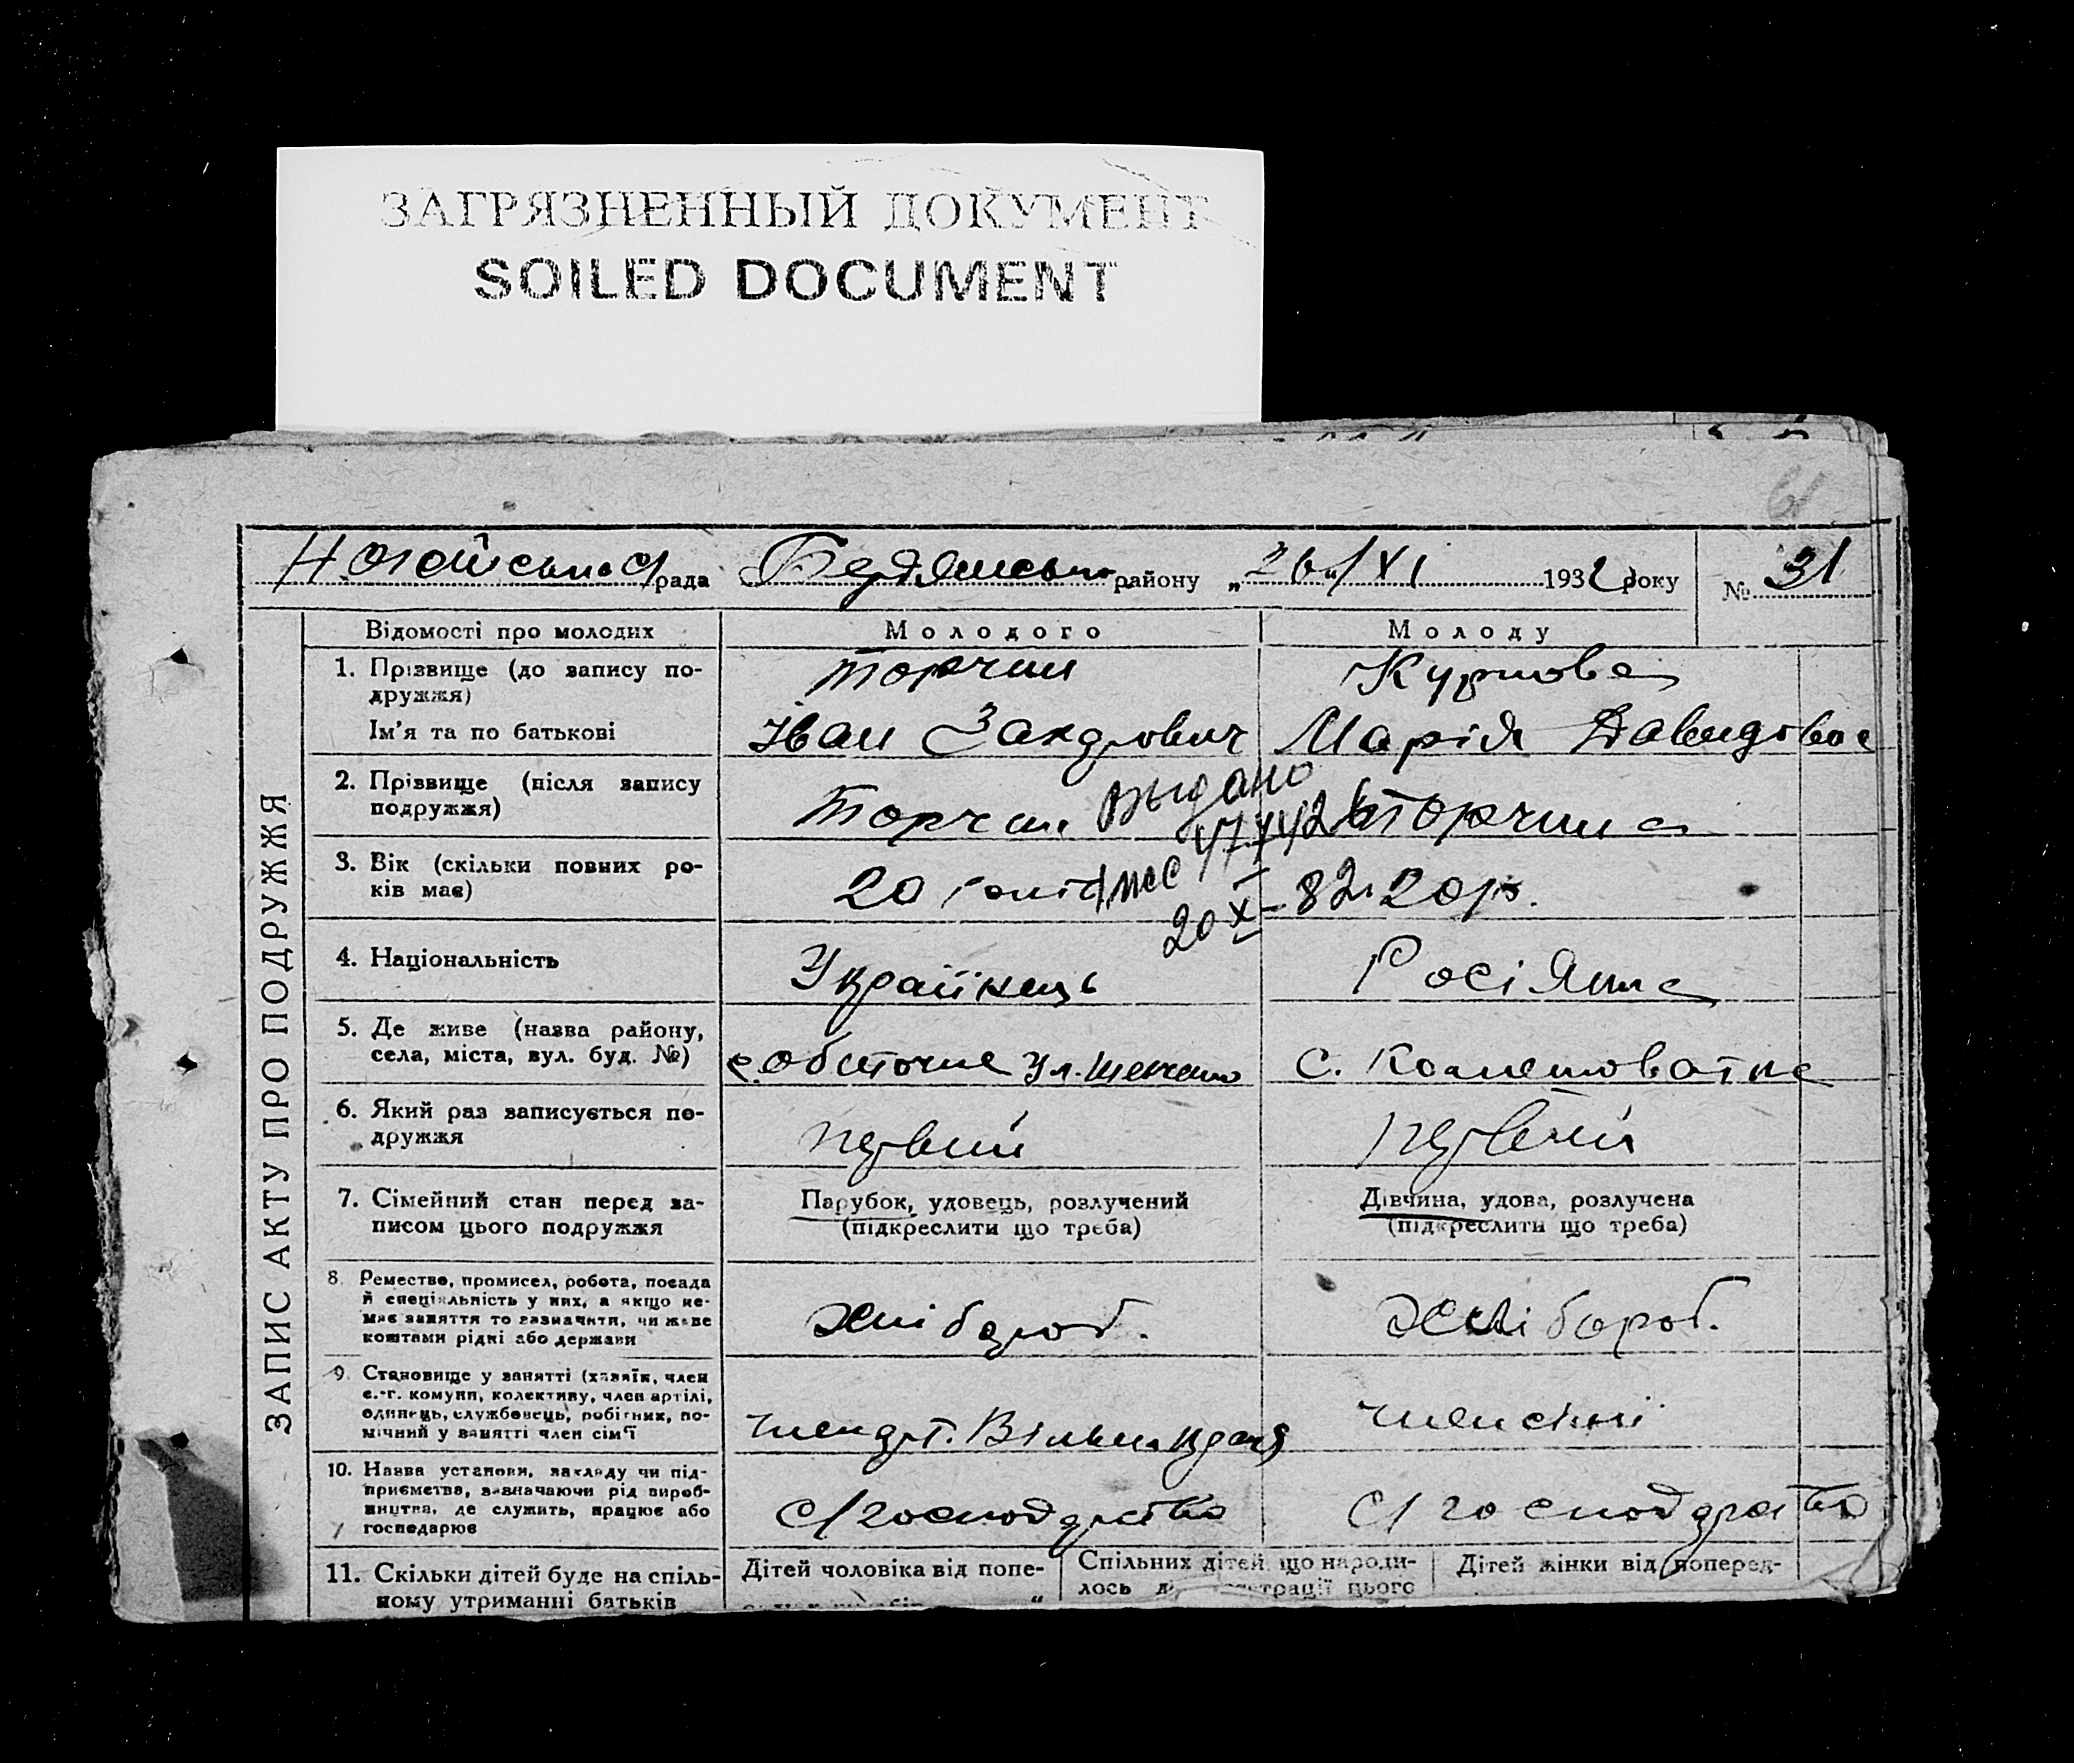 ЗАГРЯЗНЕННЫЙ ДОКУМЕНТ
SOILED DOCUMENT
61
Ногайська рада Бердянського району „26“/XI 1932 року № 31
ЗАПИС АКТУ ПРО ПОДРУЖЖЯ
Відомості про молодих Молодого Молоду
1. Прізвище (до запису по-
дружжя) Торчин
Ім'я та по батькові Іван Захарович Марія Давидовна
2. Прізвище (після запису
подружжя) Торчин Торчина
Выдано
20 X - 82
3. Вік (скільки повних ро-
ків має) 20 20 р.
4. Національність Українець Росіянка
5. Де живе (назва району,
села, міста, вул. буд. №) с. Обиточне Ул. Шевченко с.
6. Який раз записується по-
дружжя первий первий
7. Сімейний стан перед за-
писом цього подружжя
Парубок, удовець, розлучений
(підкреслити що треба)
Дівчина, удова, розлучена
(підкреслити що треба)
8. Ремество, промисел, робота, посада
й спеціяльність у них, а якщо не-
має заняття то зазначити, чи живе
коштами рідні або держави
хлібороб. хлібороб.
9. Становище у занятті (хазяїн, член
с.-г. комуни, колективу, член артілі,
одинець, службовець, робітник, по-
мічний у занятті член сім'ї
член арт. Вільна член сімї
10. Назва установи, закладу чи під-
приємства, зазначаючи рід вироб-
ництва, де служить, працює або
господарює
с/господарство с/господарство
11. Скільки дітей буде на спіль-
ному утриманні батьків
Дітей чоловіка від попе-
Спільних дітей що народи-
лось до реєстрації цього
Дітей жінки від поперед-